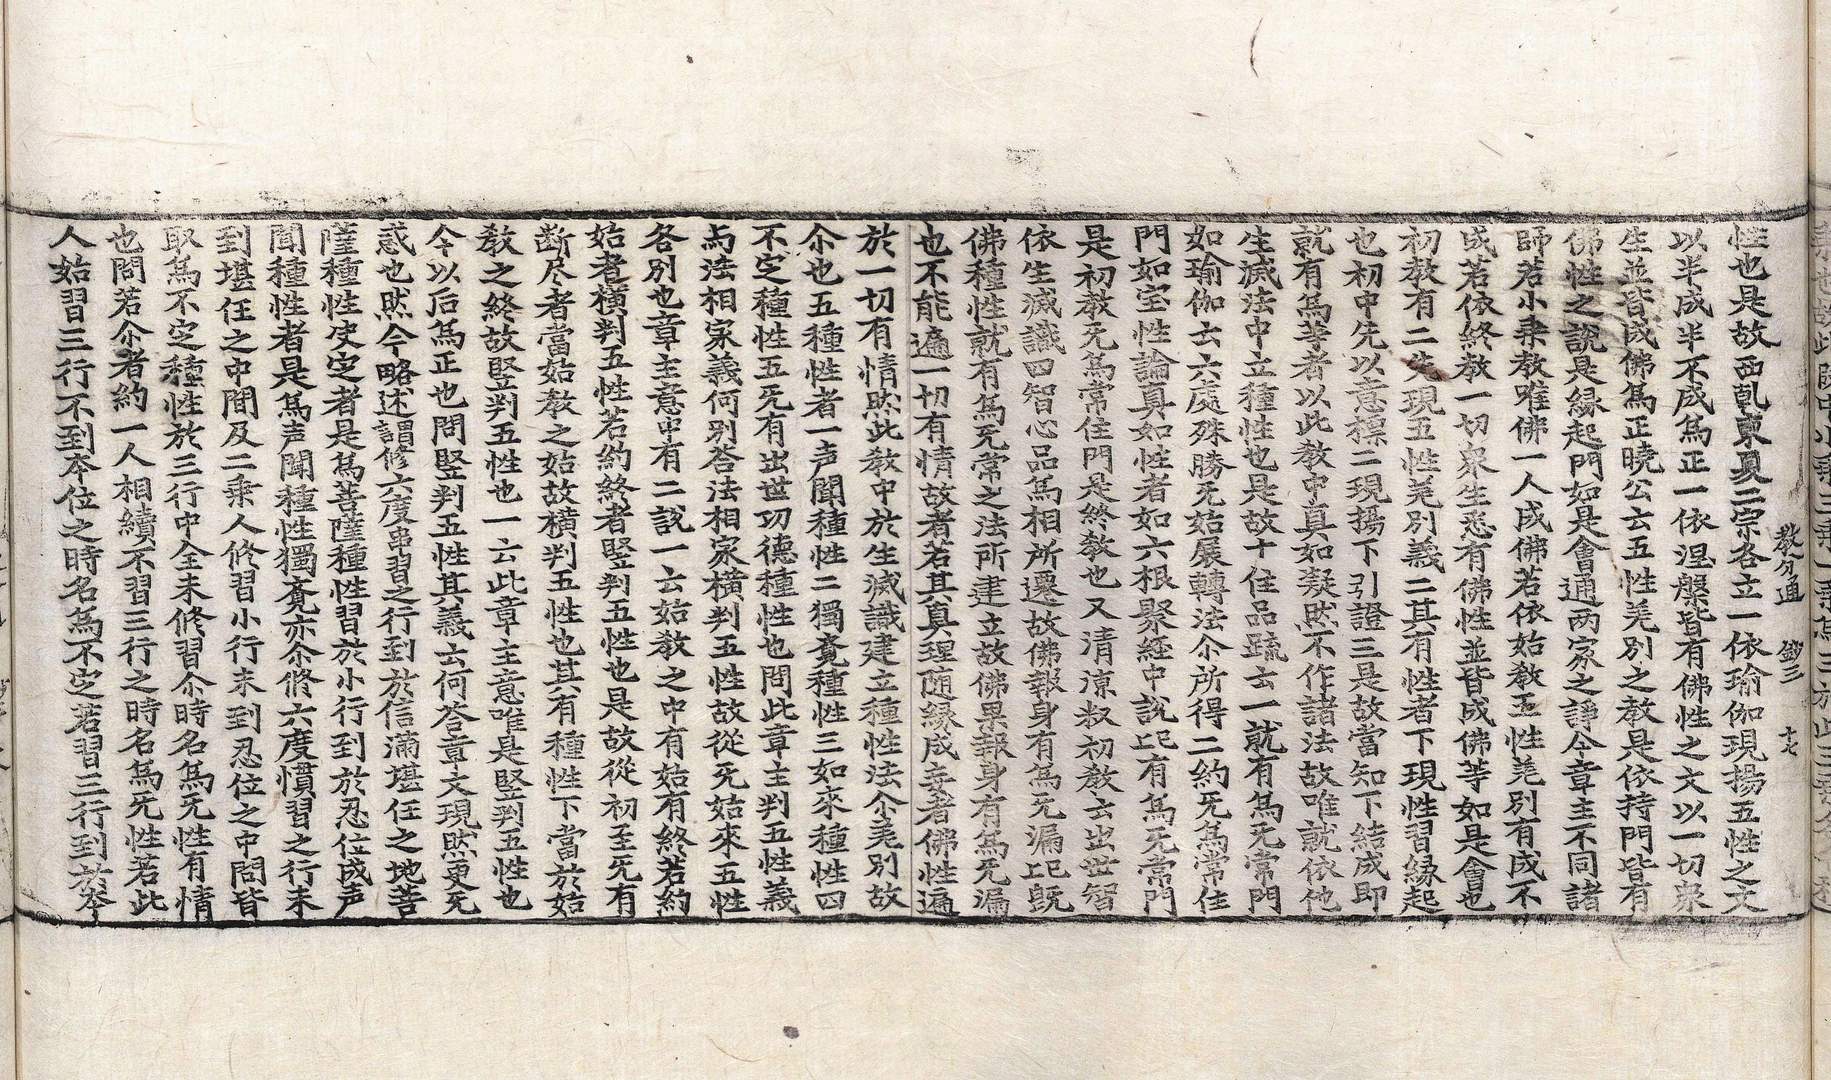 教分通 鈔三 十七
性也是故西乹東夏二宗各立一依瑜伽現揚五性之文
以半成半不成爲正一依涅槃皆有佛性之文以一切衆
生並皆成佛爲正曉公云五性差别之教是依持門皆有
佛性之說是縁起門如是會通两家之諍今章主不同諸
師若小乘教唯佛一人成佛若依始教五性差别有成不
成若依終教一切衆生悉有佛性並皆成佛等如是會也
初教有二先現五性差别義二其有性者下現性習縁起
也初中先以意標二現揚下引證三是故當知下結成即
就有爲等者以此教中真如凝然不作諸法故唯就依他
生滅法中立種性也是故十住品䟽云一就有爲无常門
如瑜伽云六處殊勝无始展轉法尒所得二約无爲常住
門如宝性論真如性者如六根聚経中說上已有爲无常門
是初教无爲常住門是終教也又清凉叔初教云出世智
依生滅識四智心品爲相所遷故佛報身有爲无漏上已旣
佛種性就有爲无常之法所建立故佛果報身有爲无漏
也不能遍一切有情故者若其真理随縁成妄者佛性遍
於一切有情然此教中於生滅識建立種性法尒差别故
尒也五種性者一声聞種性二獨覔種性三如來種性四
不定種性五无有出世功德種性也問此章主判五性義
与法相家義何别荅法相家横判五性故從无始來五性
各别也章主意中有二說一云始教之中有始有終若約
始者横判五性若約終者竪判五性也是故從初至无有
断尽者當始教之始故横判五性也其有種性下當於始
教之終故竪判五性也一云此章主意唯是竪判五性也
今以后爲正也問竪判五性其義云何荅章文現然更无
惑也然今略述謂修六度串習之行到於信滿堪任之地菩
薩種性㝎者是爲菩薩種性習於小行到於忍位成声
聞種性者是爲声聞種性獨覔亦尒修六度慣習之行未
到堪任之中間及二乘人修習小行未到忍位之中間皆
取爲不定種性於三行中全未修習尒時名爲无性有情
也問若尒者約一人相續不習三行之時名爲无性若此
人始習三行不到本位之時名爲不定若習三行到於本